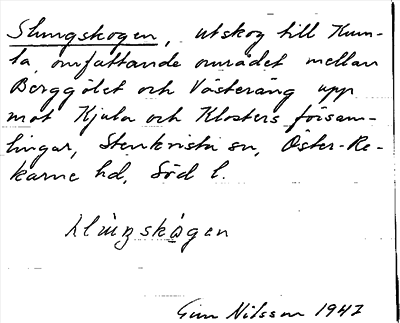 Slungskogen, utskog till Hum-
la, omfattande området mellan
Berggölet och Västeräng upp
mot Kjula och Klosters försam-
lingar, Stenkvista sn, Öster-Re-
karne hd, Söd l.
slúŋskògen
Gun Nilsson 1947